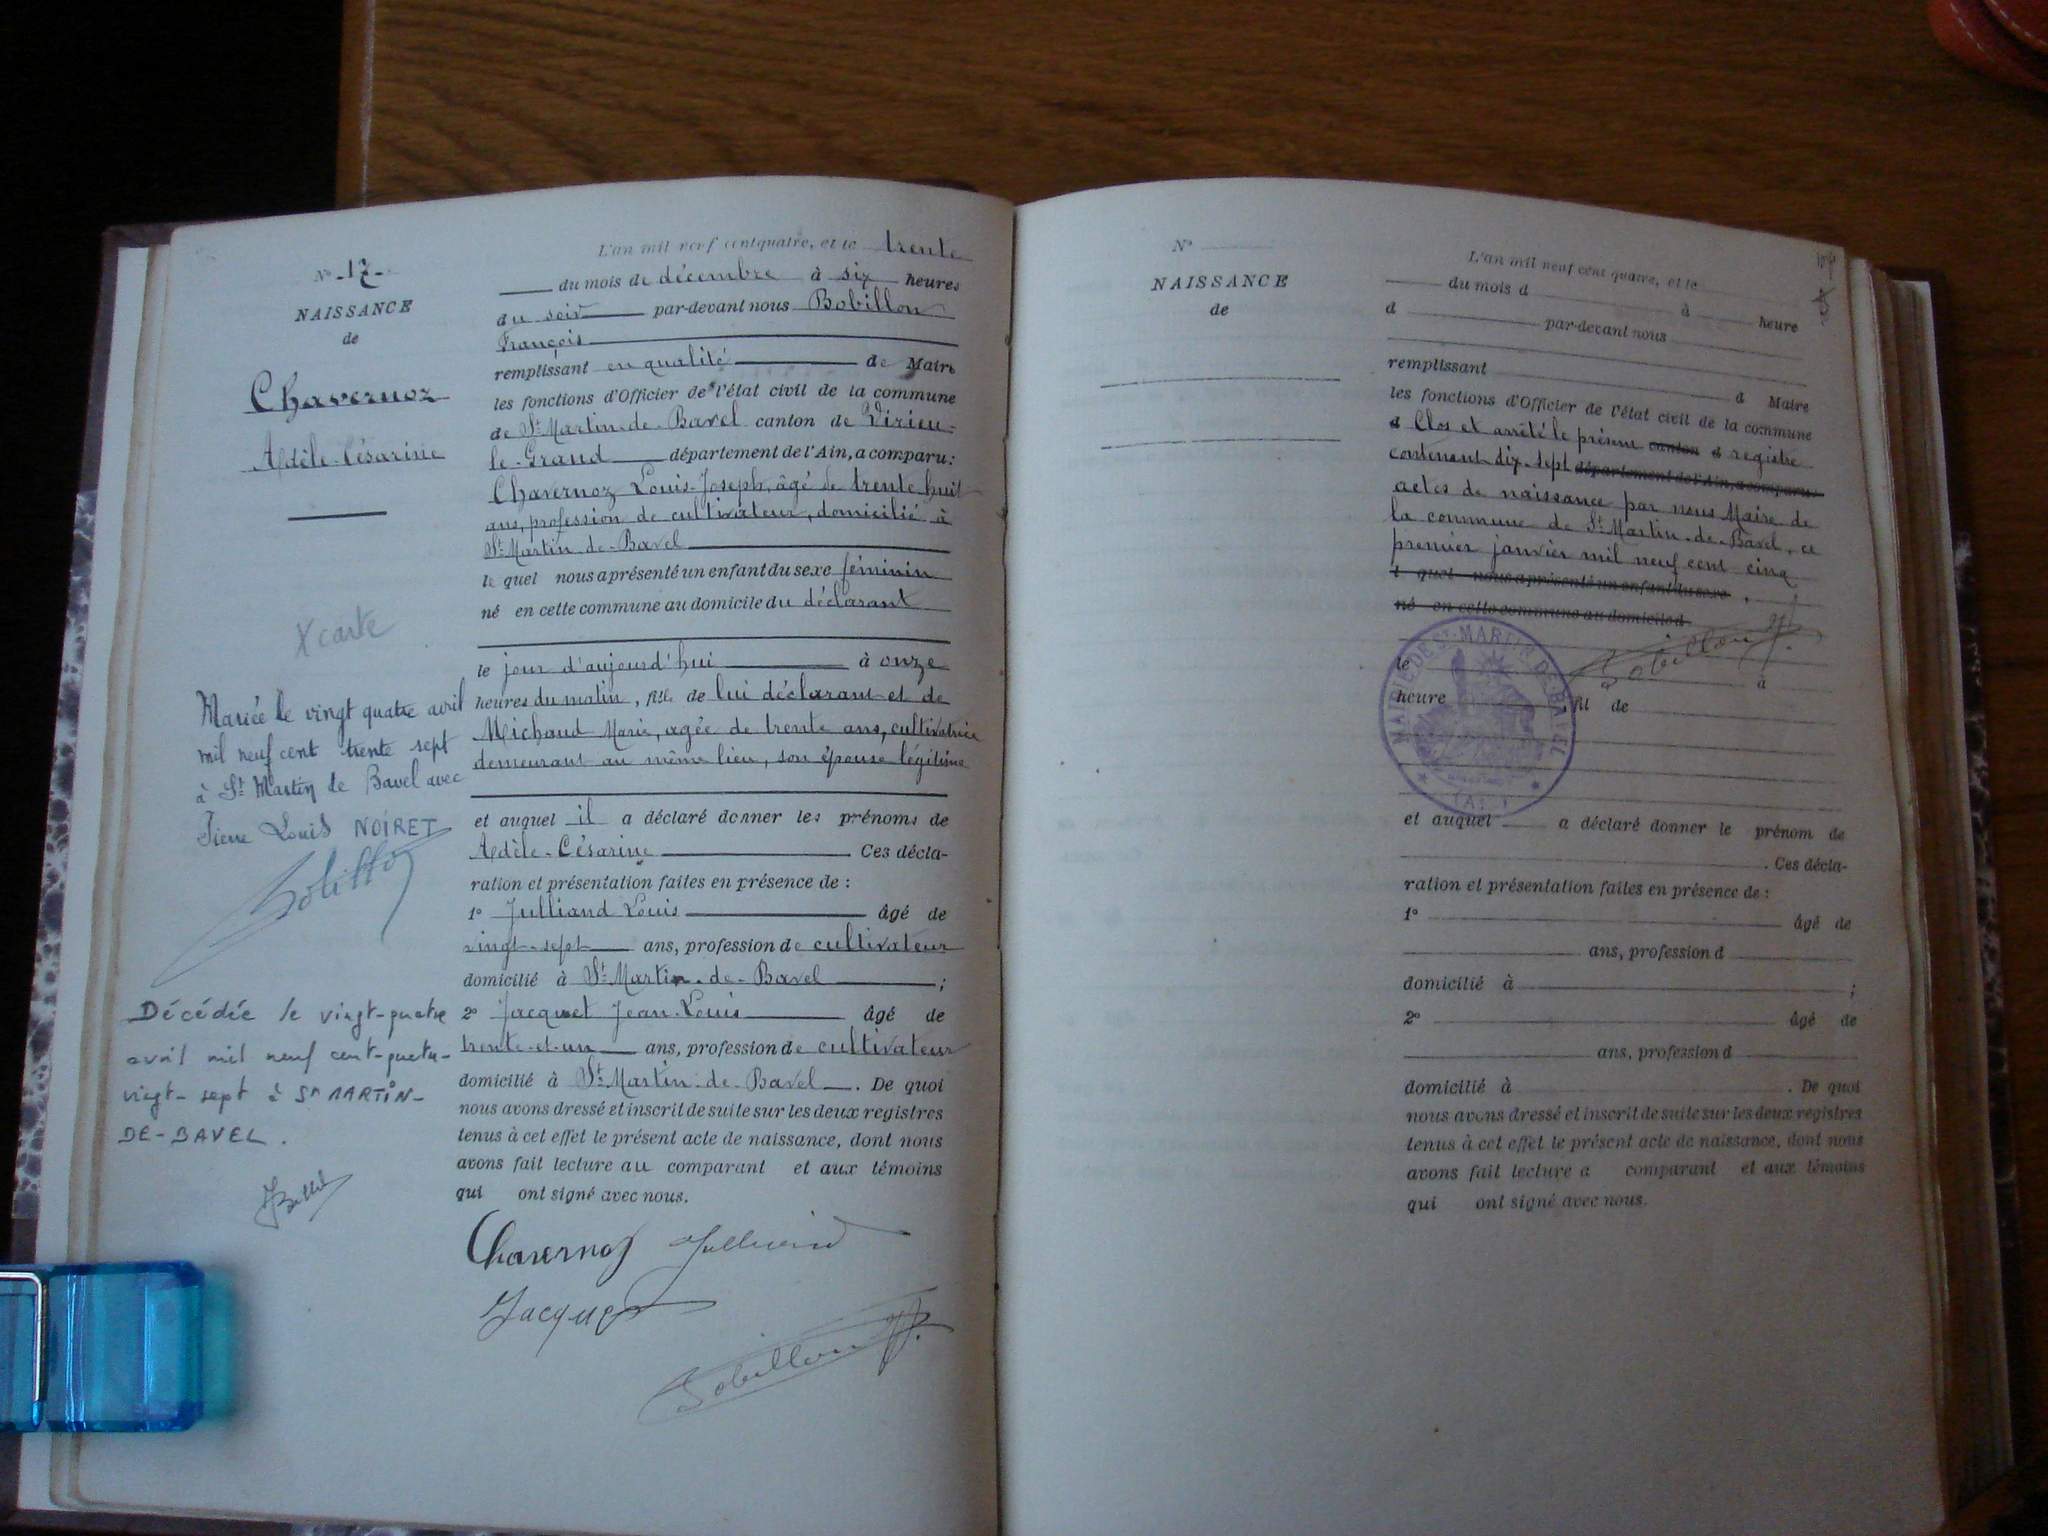 L'an mil neuf cent quatre, et le trente
N° 17
du mois de décembre à six heures
NAISSANCE
du soir par-devant nous Bobillon
de
François
remplissant en qualité de Maire
Chavernoz
les fonctions d'Officier de l'état civil de la commune
de St Martin-de-Bavel canton de Virieu-
Adèle-Césarine
le-Grand département de l'Ain, a comparu:
Chavernoz Louis-Joseph, âgé de trente huit
ans, profession de cultivateur, domicilié à
St Martin-de-Bavel
le quel nous a présenté un enfant du sexe féminin
né en cette commune au domicile du déclarant
X carte
le jour d'aujourd'hui à onze
heures du matin, fil de lui déclarant et de
Michaud Marie, agée de trente ans, cultivatrice
demeurant au même lieu, son épouse légitime
Mariée le vingt quatre avril
mil neuf cent trente sept
à St Martin de Bavel avec
Pierre Louis NOIRET
Bobillon
et auquel il a déclaré donner les prénoms de
Adèle-Césarine Ces décla-
ration et présentation faites en présence de :
1° Julliand Louis âgé de
vingt-sept ans, profession de cultivateur
domicilié à St Martin-de-Bavel ;
2° Jacquet Jean-Louis âgé de
trente-et-un ans, profession de cultivateur
domicilié à St Martin-de-Bavel. De quoi
nous avons dressé et inscrit de suite sur les deux registres
tenus à cet effet le présent acte de naissance, dont nous
avons fait lecture au comparant et aux témoins
qui ont signé avec nous.
Décédée le vingt-quatre
avril mil neuf cent-quatre-
vingt-sept à St MARTIN-
DE-BAVEL.
Chavernoz Julliand
Jacquet
Bobillon
N°
L'an mil neuf cent quatre, et le
NAISSANCE
du mois d à heure
de
d par-devant nous
remplissant d Maire
les fonctions d'Officier de l'état civil de la commune
d Clos et arrêté le présent canton d registre
contenant dix-sept département de l'Ain, a comparu:
actes de naissance par nous Maire de
la commune de St Martin-de-Bavel, ce
premier janvier mil neuf cent cinq
l quel nous a présenté un enfant du sexe
né en cette commune au domicile d
Bobillon
MAIRIE DE ST MARTIN DE BAVEL
le à
heure , fil de
et auquel a déclaré donner le prénom de
. Ces décla-
ration et présentation faites en présence de :
1° âgé de
ans, profession d
domicilié à ;
2° âgé de
ans, profession d
domicilié à . De quoi
nous avons dressé et inscrit de suite sur les deux registres
tenus à cet effet le présent acte de naissance, dont nous
avons fait lecture a comparant et aux témoins
qui ont signé avec nous.